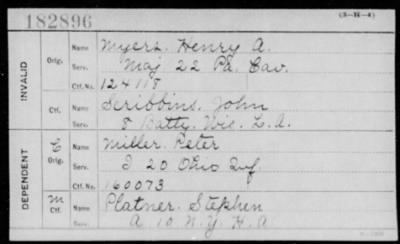 182896
(3-H-4)
INVALID
Orig.
Name Myers, Henry A.
Serv. Maj 22 Pa. Cav.
Ctf. No. 124118
Ctf.
Name Scribbins, John
Serv. 8 Batty. Wis. L.A.
DEPENDENT
C
Orig.
Name Miller, Peter
Serv. I 20 Ohio Inf.
Ctf. No. 160073
m
Ctf.
Name Platner, Stephen
Serv. A 10 N.Y. H.A